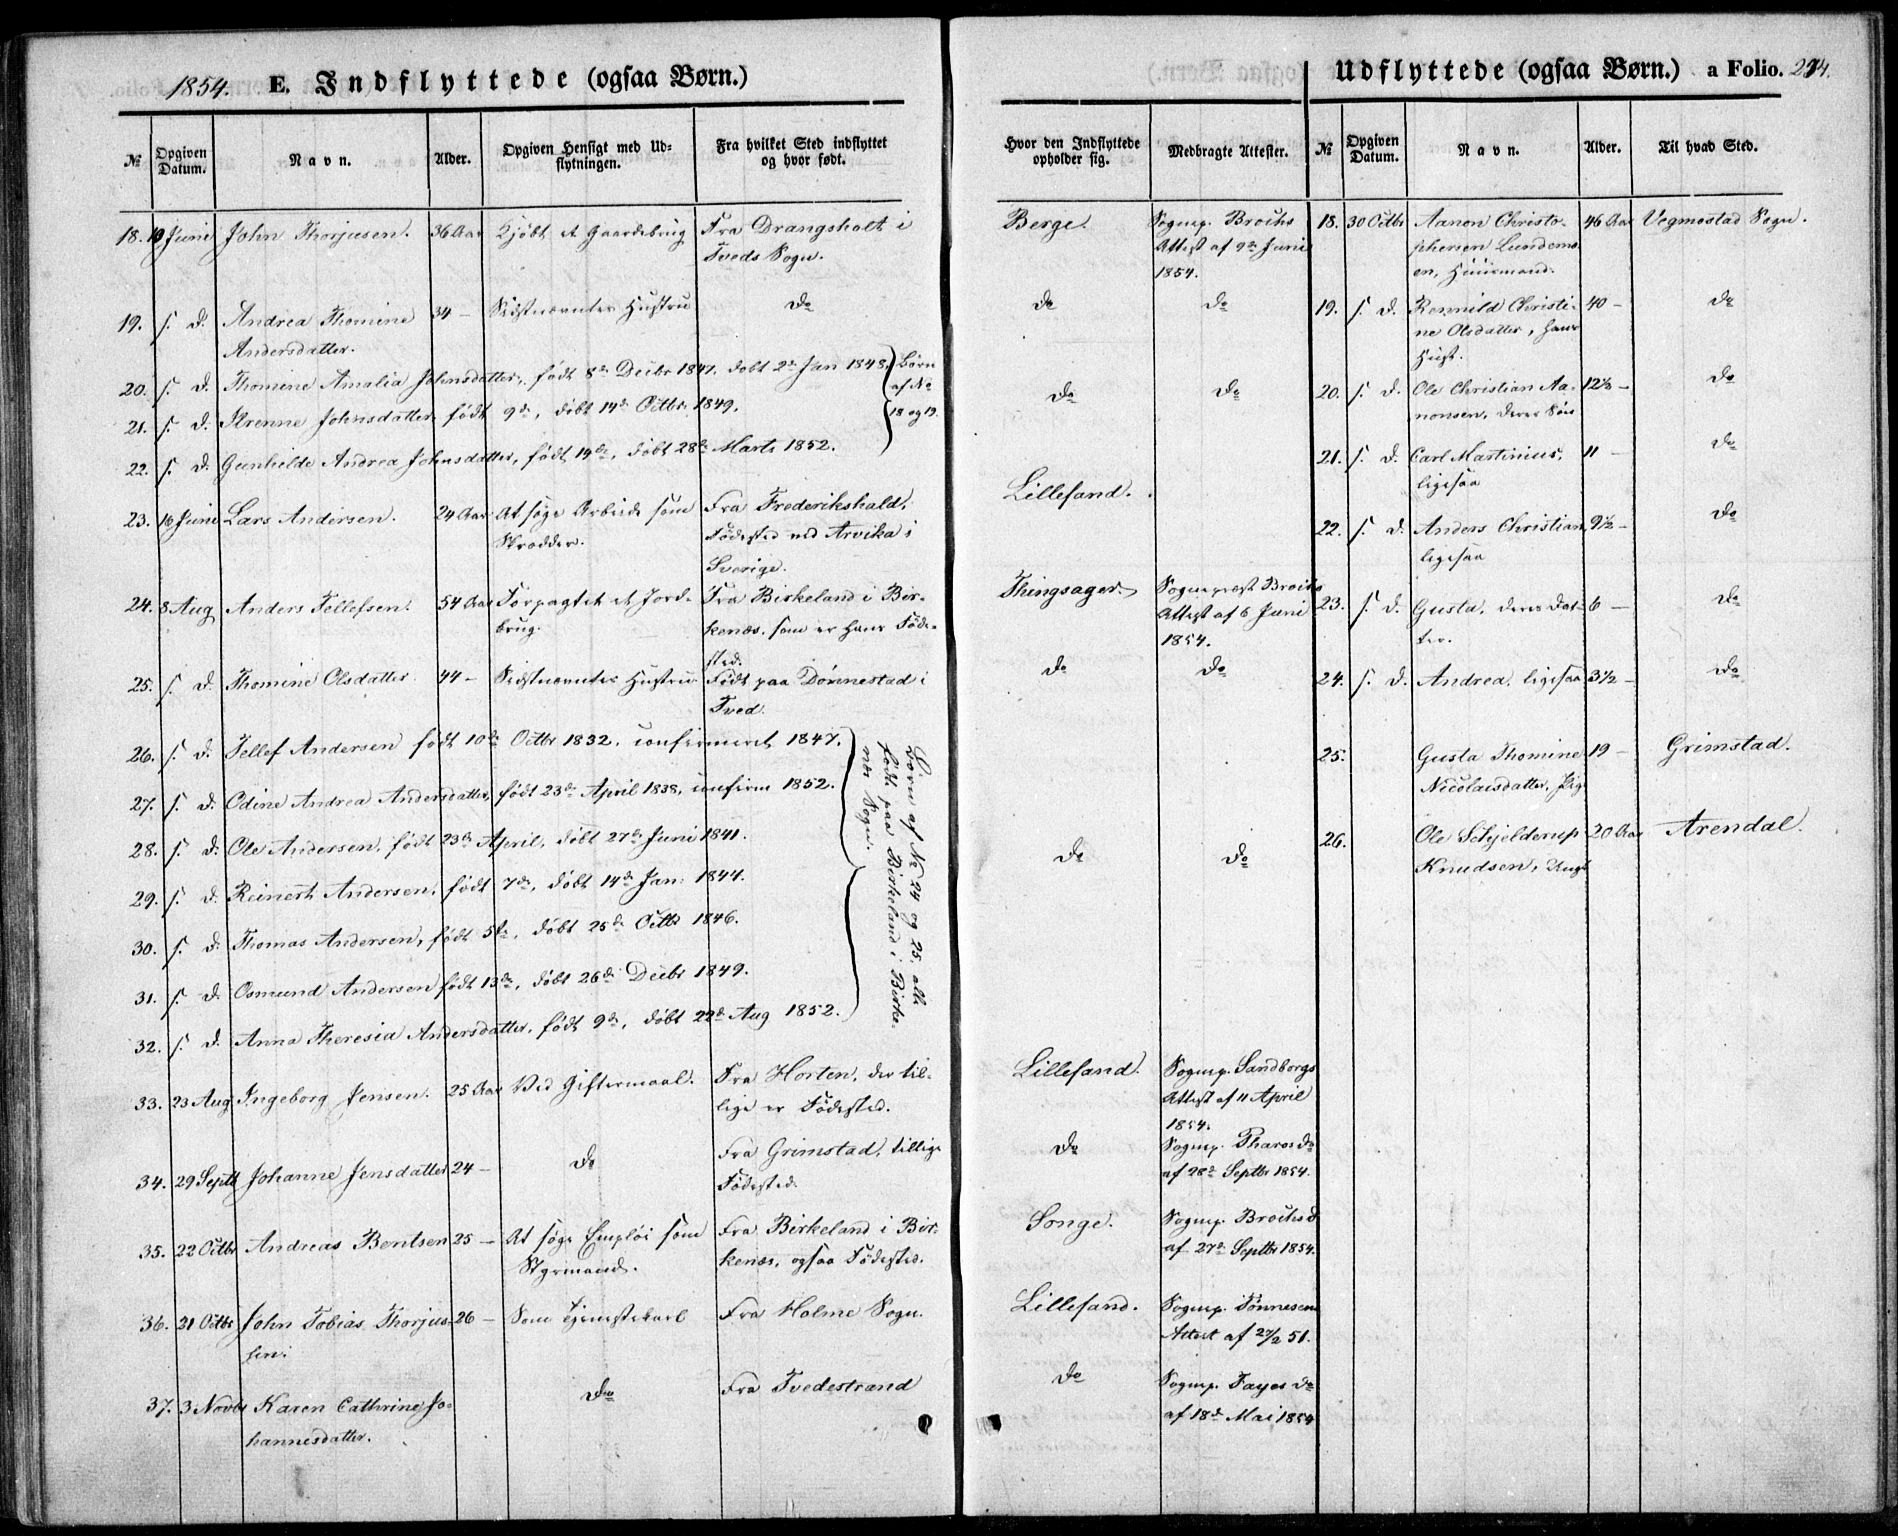 1854. E. Indflyttede (ogsaa Børn.)
№ Opgiven Datum. Navn. Alder. Opgiven Hensigt med Ud-
flytningen. Fra hvilket Sted indflyttet
og hvor født.
18. 10 Juni John Thorjusen. 36 Aar Kjøbt et Gaardebrug Fra Drangsholt i
Tveds Sogn.
19. s. d. Andrea Thomine 34 – Sidstnævntes Hustru do
Andersdatter.
20. s. d. Thomine Amalia Johnsdatter, født 8de Decbr 1847, døbt 2den Jan 1848. Børn
af No
21. s. d. Stenne Johnsdatter født 9de, døbt 14de Octbr. 1849. 18 og 19.
22. s. d. Gunhilde Andrea Johnsdatter, født 19de, døbt 28de Marts 1852.
23. 16 Juni Lars Andersen. 24 Aar At søge Arbeide som Fra Frederikshald,
Skrædder. Fødested ved Arvika i
Sverige.
24. 8 Aug Anders Tellefsen. 54 Aar Forpagtet et Jord- Fra Birkeland i Bir-
brug. kenæs, som er hans Føde-
sted.
25. s. d. Thomine Olsdatter 44 – Sidstnævntes Hustru Født paa Dønnestad i
Tved.
26. s. d. Tellef Andersen født 10de Octbr 1832, confirmeret 1847.
27. s. d. Odine Andrea Andersdatter, født 23de April 1838, confirm 1852.
28. s. d. Ole Andersen, født 23de April, døbt 27de Juni 1841.
29. s. d. Reinert Andersen, født 7de, døbt 14de Jan: 1844.
30. s. d. Thomas Andersen, født 5te, døbt 25de Octbr 1846.
31. s. d. Osmund Andersen født 13de, døbt 26de Decbr 1849.
32. s. d. Anna Theresia Andersdatter, født 9de, døbt 22de Aug 1852.
Børn af No 24 og 25, alle
født paa Birkeland i Birke-
næs Sogn.
33. 23 Aug Ingeborg Jensen. 25 Aar Ved Giftermaal. Fra Horten, der til-
lige er Fødested.
34. 29 Septb Johanne Jensdatter 24 – do Fra Grimstad, tillige
Fødested.
35. 22 Octbr Andreas Berntsen 25 – At søge Emploi som Fra Birkeland i Bir-
Styrmand. kenæs, ogsaa Fødested.
36. 21 Octbr John Tobias Thorjus- 26 – Som Tjenestekarl Fra Holme Sogn.
sen.
37. 3 Novbr Karen Cathrine Jo- do Fra Tvedestrand
hannesdatter.
Udflyttede (ogsaa Børn.) a Folio. 274.
Hvor den Indflyttede
opholder sig. Medbragte Attester. № Opgiven
Datum. Navn. Alder. Til hvad Sted.
Berge. Sognep. Brochs 18. 30 Octbr Aanon Christo- 46 Aar Vegmostad Sogn.
Attest af 9de Juni phersen Lundemo-
1854. en, Huusmand.
do do 19. s. d. Rennild Christi- 40 – do
ne Olsdatter, hans
Hust.
do do 20. s. d. Ole Christian Aa- 12½ – do
nonsen, deres Søn
21. s. d. Carl Martinius, 11 – do
Lillesand. ligesaa
22. s. d. Anders Christian, 9½ – do
ligesaa
Thingsager Sognepræst Brochs
Attest af 6 Juni 23. s. d. Gusta, deres Dat- 6 – do
1854. ter.
do do 24. s. d. Andrea, ligesaa 3½ – do
25. Gusta Thomine 19 – Grimstad.
Nicolaisdatter, Pige
26. Ole Schjelderup 20 Aar Arendal.
do do Knudsen, Ungk
Lillesand. Sognep. Sandborgs
Attest af 11 April
1854.
do Sognep. Tharos do
af 28de Septbr 1854.
Songe. Sognep. Brochs do
af 27de Septbr 1854.
Lillesand. Sognep. Tønnesens
Attest af 27/2 51.
do Sognep. Fayes do
af 18de Mai 1854